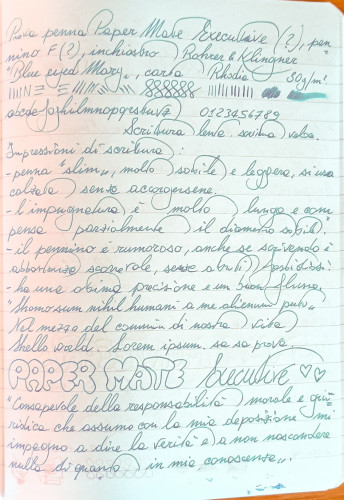 Prova penna Paper Mate Executive (?), pen-
nino F (?), inchiostro Rohrer & Klingner
"Blue eyed Mary", carta Rhodia 80g/m²
abcdefghijklmnopqrstuvz 0123456789
Scrittura lenta. veloce.
Impressioni di scrittura:
- penna "slim", molto sottile e leggera, si usa
calzata senza accorgersene.
- l'impugnatura è molto lunga e com
pensa parzialmente il diametro sottile.
- il pennino è rumoroso, anche se scrivendo è
abbastanza scorrevole, senza attriti fastidiosi
- ha una ottima precisione e un buon flusso
"Homo sum nihil humani a me alienum puto"
Nel mezzo del cammin di nostra vita
Hello world. Lorem ipsum. sa sa prova.
PAPER MATE Executive ♡♡
"Consapevole della responsabilità morale e giu-
ridica che assumo con la mia deposizione mi
impegno a dire la verità e a non nascondere
nulla di quanto in mia conoscenza".